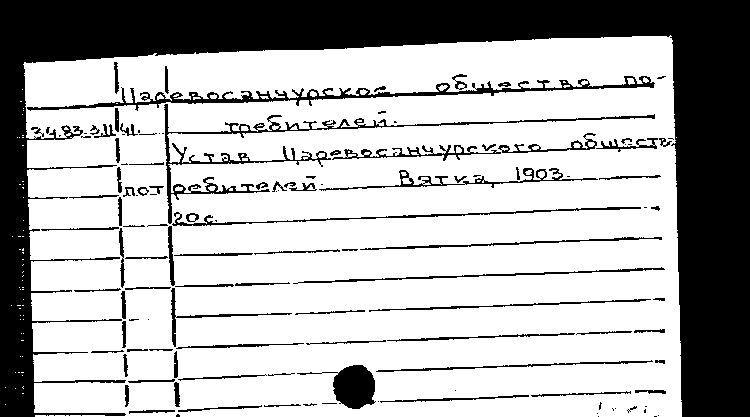 Царевосанчурское общество по-
34.83.3.11.41. требителей.
Устав Царевосанчурского общества
потребителей. Вятка, 1903.
20с.